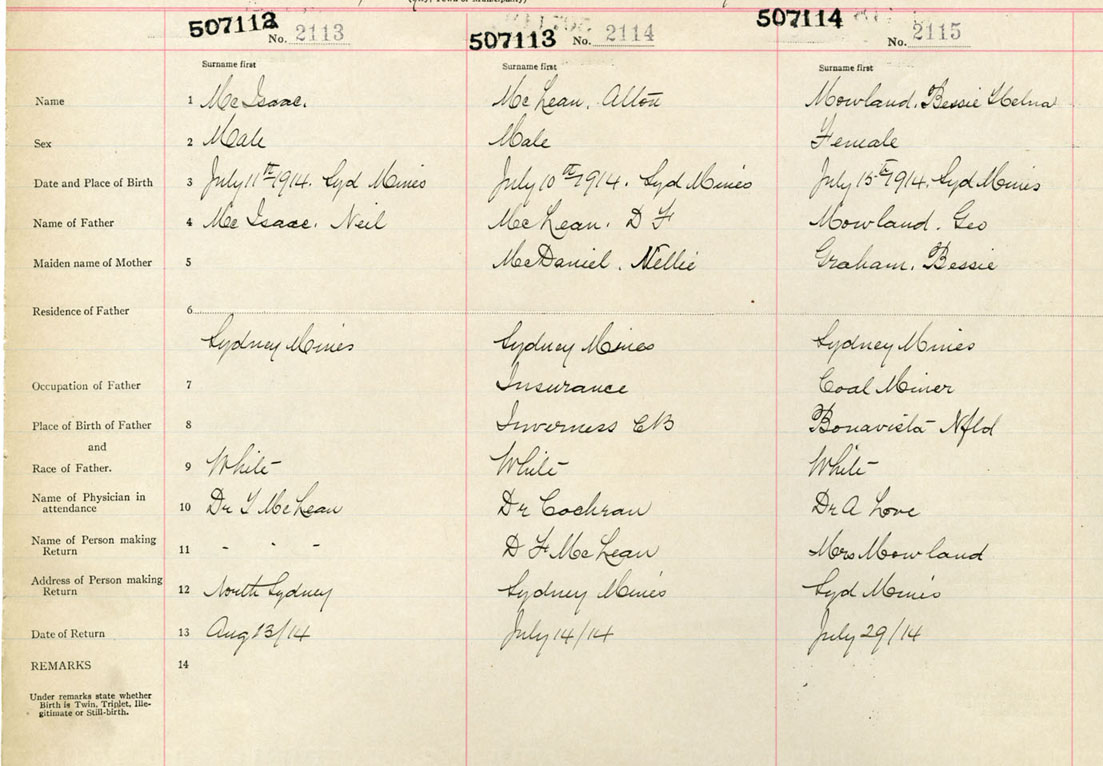 507112 No. 2113 507113 No. 2114 507114 No. 2115
Surname first Surname first Surname first
Name 1 McIsaac. McLean. Alton Mowland. Bessie
Sex 2 Male Male Female
Date and Place of Birth 3 July 11th 1914. Syd Mines July 10th 1914. Syd Mines July 15th 1914. Syd Mines
Name of Father 4 McIsaac. Neil McLean. D F Mowland. Geo
Maiden name of Mother 5 McDaniel. Nellie Graham. Bessie
Residence of Father 6
Sydney Mines Sydney Mines Sydney Mines
Occupation of Father 7 Insurance Coal Miner
Place of Birth of Father 8 Inverness CB Bonavista Nfld
and
Race of Father. 9 White White White
Name of Physician in
attendance 10 Dr McLean Dr Cochran Dr A Love
Name of Person making
Return 11 - - - D F McLean Mrs Mowland
Address of Person making
Return 12 North Sydney Sydney Mines Syd Mines
Date of Return 13 Aug 13/14 July 14/14 July 29/14
REMARKS 14
Under remarks state whether
Birth is Twin, Triplet, Ille-
gitimate or Still-birth.